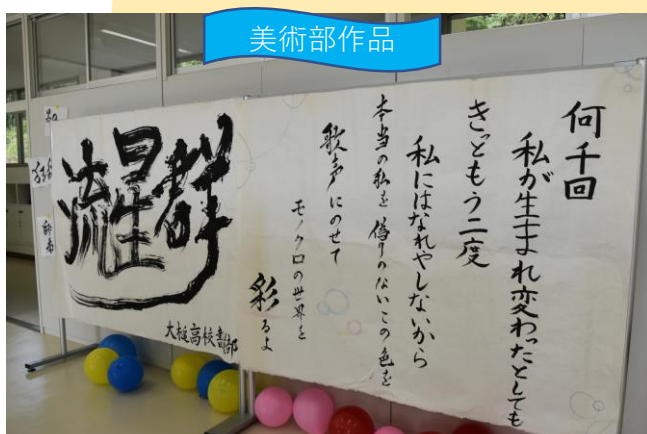 美術部作品
何千回
私が生まれ変わったとしても
きっともう二度
私にはなれやしないから
本当の私を 偽りのないこの色を
歌声にのせて
モノクロの世界を
彩るよ
流星群
大槌高校書道部